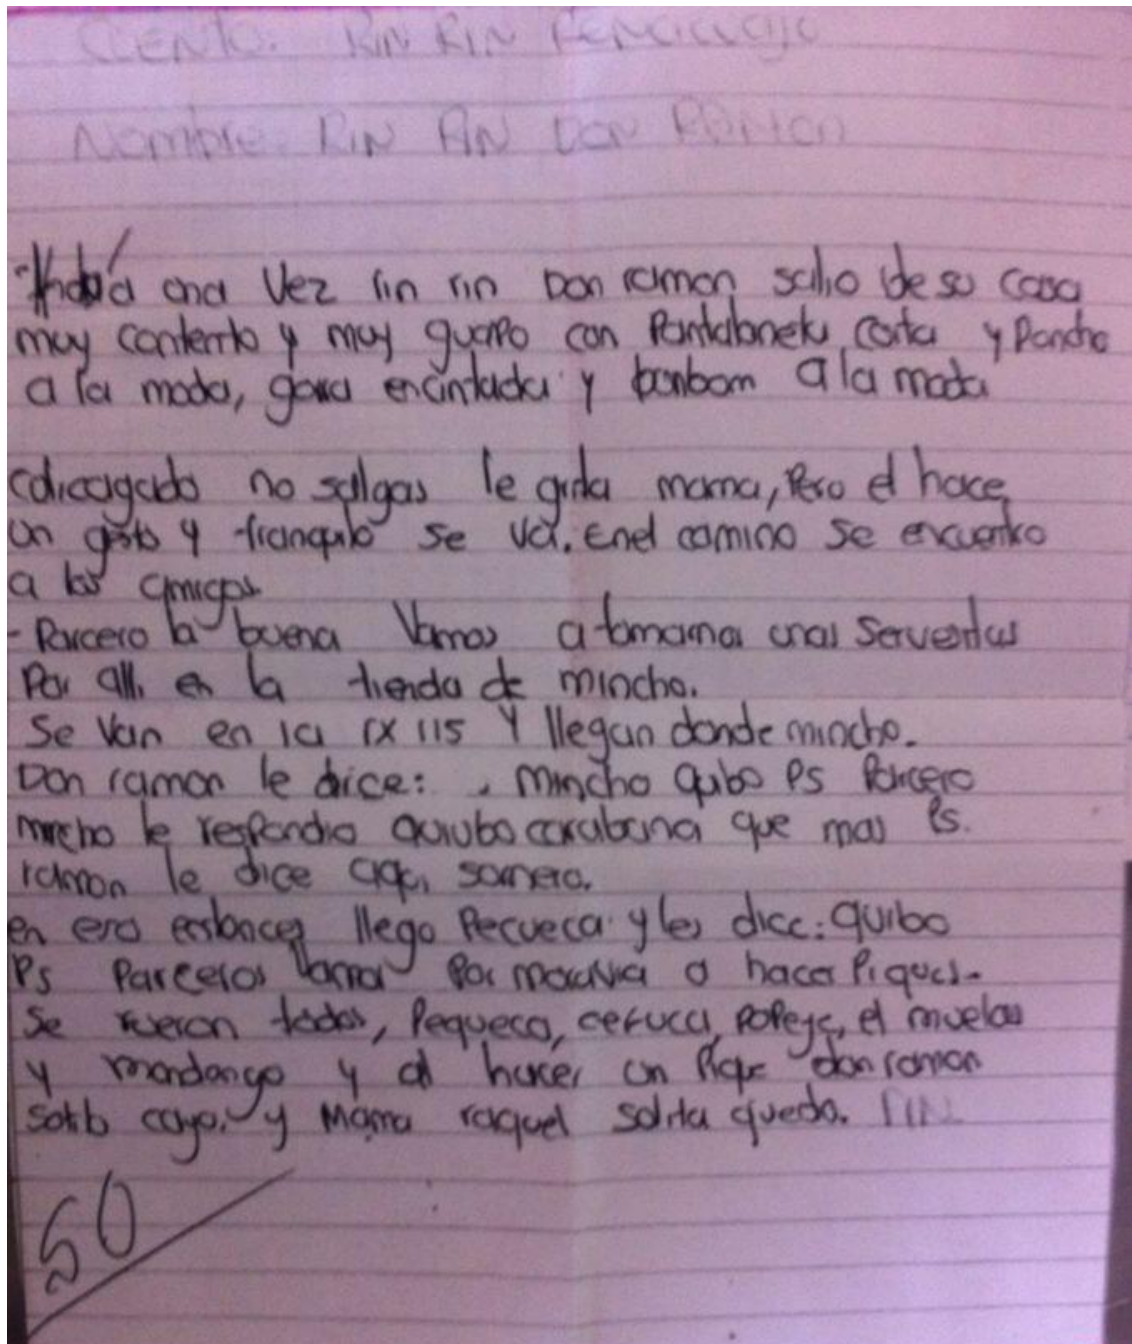 CUENTO: RIN RIN RENACUAJO
Nombre: RIN RIN DON RAMON
Había una Vez rin rin Don ramon salio de su casa
muy contento y muy guapo con Pantaloneta corta y Poncho
a la moda, gorra encintada y bonbom a la moda
no salgas le grita mama, Pero el hace
un gesto y tranquilo se va. Enel camino se encuentro
a los amigos
- Parcero la buena Vamos a tomarnos unas Serventas
Por alli en la tienda de mincho.
Se Van en la rx 115 Y llegan donde mincho.
Don ramon le dice: mincho quibo Ps Parcero
mincho le respondio quiubo carabana que mas Ps.
ramon le dice aqui somero.
en eso entonces llego Pecueca y les dice: quibo
Ps Parceros Vamos Por moravia a hacer Piques.
Se fueron todos, Pequeca, cefuca, Popeye, el muelas
y mondongo y al hacer un Pique don ramon
solito cayo. y Mama raquel solita quedo. FIN
50